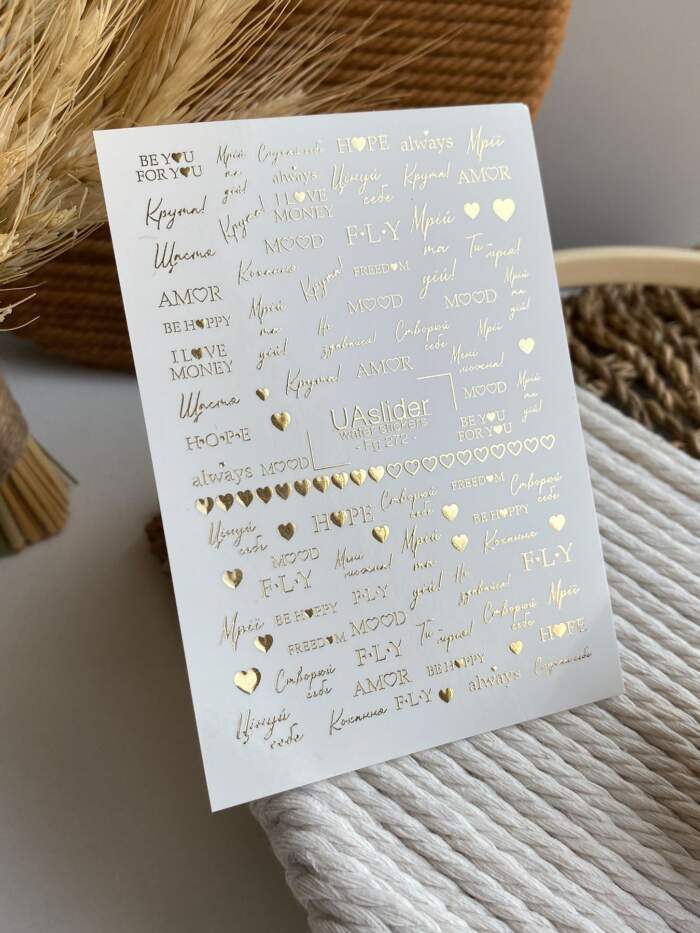 BE YOU
FOR YOU
Мрій
та
дій!
Слухай себе
always
HOPE
always
Мрії
Крута!
Круто!
I LOVE
MONEY
Цінуй
себе
Крута!
AMOR
Щастя
MOOD
F•L•Y
Мрій
та
дій!
Ти - мрія!
Кохання
Крута!
FREEDOM
AMOR
BE HAPPY
Мрій
та
дій!
MOOD
MOOD
Мрій
та
дій!
I LOVE
MONEY
Не
здавайся!
Створюй
себе
Мрій
Щастя
Крута!
AMOR
Мені
можна!
HOPE
UAslider
water stickers
MOOD
BE YOU
FOR YOU
Мрій
та
дій!
always
MOOD
Цінуй
себе
HOPE
Створюй
себе
FREEDOM
Створюй
себе
MOOD
F•L•Y
Мені
можна!
Мрій
та
дій!
BE HAPPY
Кохання
Мрії
BE HAPPY
F•L•Y
Не
здавайся!
F•L•Y
FREEDOM
MOOD
Ти - мрія!
Створюй
себе
Мрії
Створюй
себе
F•L•Y
AMOR
BE HAPPY
HOPE
Цінуй
себе
Кохання
F•L•Y
always
Слухай себе